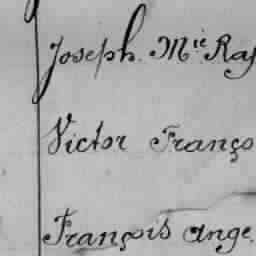 Joseph. M.ie Ray
Victor Franço
François ange.